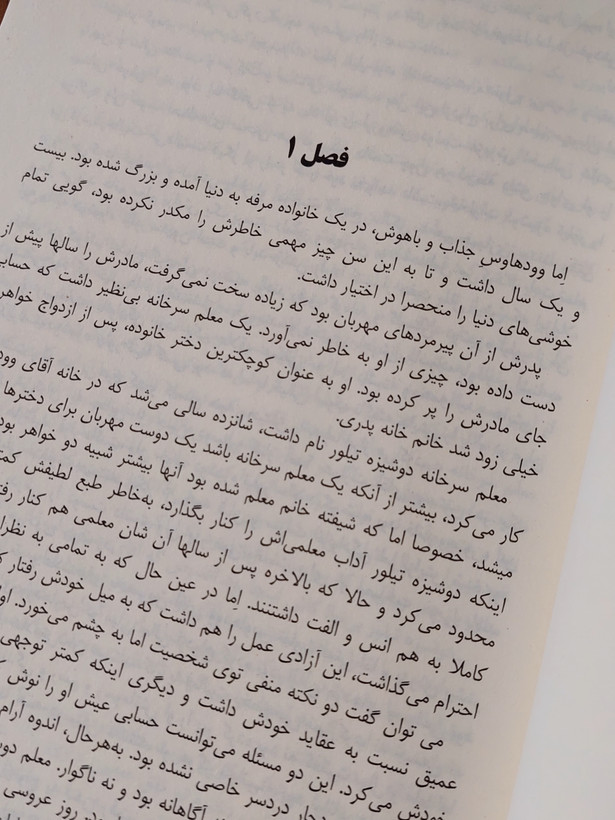 فصل ۱
اِما وودهاوسِ جذاب و باهوش، در یک خانواده مرفه به دنیا آمده و بزرگ شده بود. بیست
و یک سال داشت و تا به این سن چیز مهمی خاطرش را مکدر نکرده بود، گویی تمام
خوشی‌های دنیا را منحصرا در اختیار داشت.
پدرش از آن پیرمردهای مهربان بود که زیاده سخت نمی‌گرفت، مادرش را سالها پیش از
دست داده بود، چیزی از او به خاطر نمی‌آورد. یک معلم سرخانه بی‌نظیر داشت که حسابی
جای مادرش را پر کرده بود. او به عنوان کوچکترین دختر خانوده، پس از ازدواج خواهر
خیلی زود شد خانم خانه پدری.
معلم سرخانه دوشیزه تیلور نام داشت، شانزده سالی می‌شد که در خانه آقای
کار می‌کرد، بیشتر از آنکه یک معلم سرخانه باشد یک دوست مهربان برای دخترها
میشد، خصوصا اما که شیفته خانم معلم شده بود آنها بیشتر شبیه دو خواهر
اینکه دوشیزه تیلور آداب معلمی‌اش را کنار بگذارد، به‌خاطر طبع لطیفش
محدود می‌کرد و حالا که بالاخره پس از سالها آن شان معلمی هم کنار
کاملا به هم انس و الفت داشتنند. اِما در عین حال که به تمامی به
احترام می‌گذاشت، این آزادی عمل را هم داشت که به میل خودش رفتار
می توان گفت دو نکته منفی توی شخصیت اما به چشم می‌خورد.
عمیق نسبت به عقاید خودش داشت و دیگری اینکه کمتر توجهی
خودش می‌کرد. این دو مسئله می‌توانست حسابی عیش او را نوش
دچار دردسر خاصی نشده بود. به‌هرحال، اندوه آرام
آگاهانه بود و نه ناگوار. معلم
روز عروسی